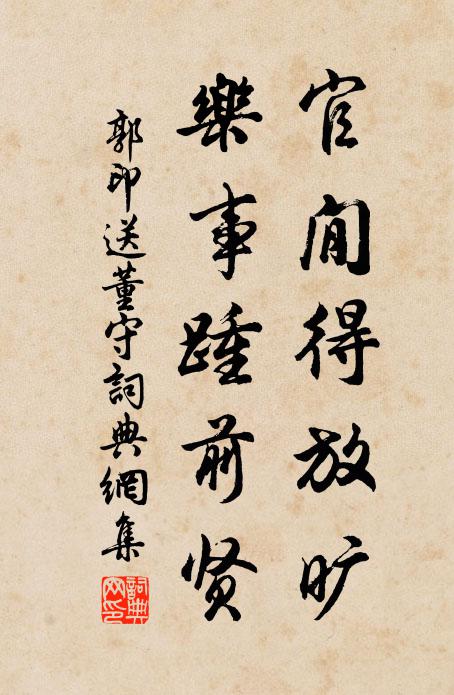 官閒得放旷
樂事踵前贤
郭印送董守詞典網集
詞典网印